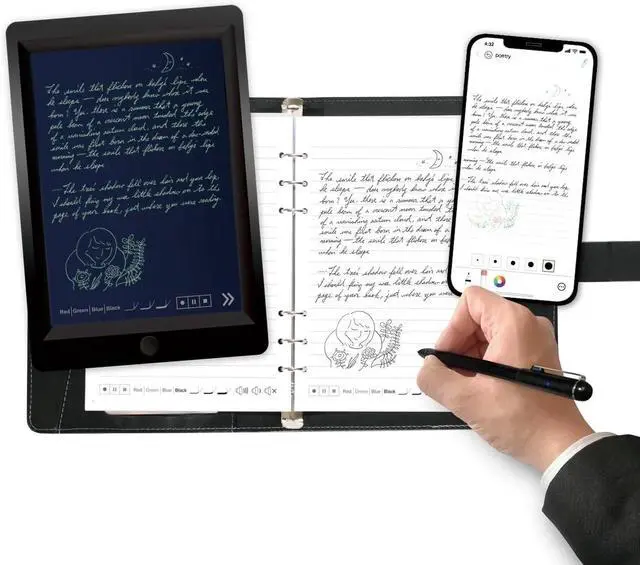 The smile that flickers on baby's lips when
he sleeps — does anybody know where it was
born? Yes, there is a rumor that a young
pale beam of a crescent moon touched the edge
of a vanishing autumn cloud, and there the
smile was first born in the dream of a dew-washed
morning — the smile that flickers on baby's lips
when he sleeps
— The tree's shadow fell over hair and your lap,
I should fling my wee little shadow on to the
page of your book, just where you were reading
Red Green Blue Black
Red Green Blue Black
The smile that flickers on
he sleeps — does anybody know
born? Yes, there is a rumor
pale beam of a crescent moon
of a vanishing autumn cloud, and
smile was first born in the dream
morning — the smile that flickers on baby
he sleeps
— The tree's shadow fell over hair and
I should fling my wee little shadow
page of your book, just where you were
Red Green Blue Black
4:32
poetry
The smile that flickers on baby's lips when
he sleeps — does anybody know where it was
born? Yes, there is a rumor that a young
pale beam of a crescent moon touched the edge
of a vanishing autumn cloud, and there the
smile was first born in the dream of a
when he sleeps
morning — the smile that flickers on baby's lips
— The tree's shadow fell over hair and your lap,
I should fling my wee little shadow on to the